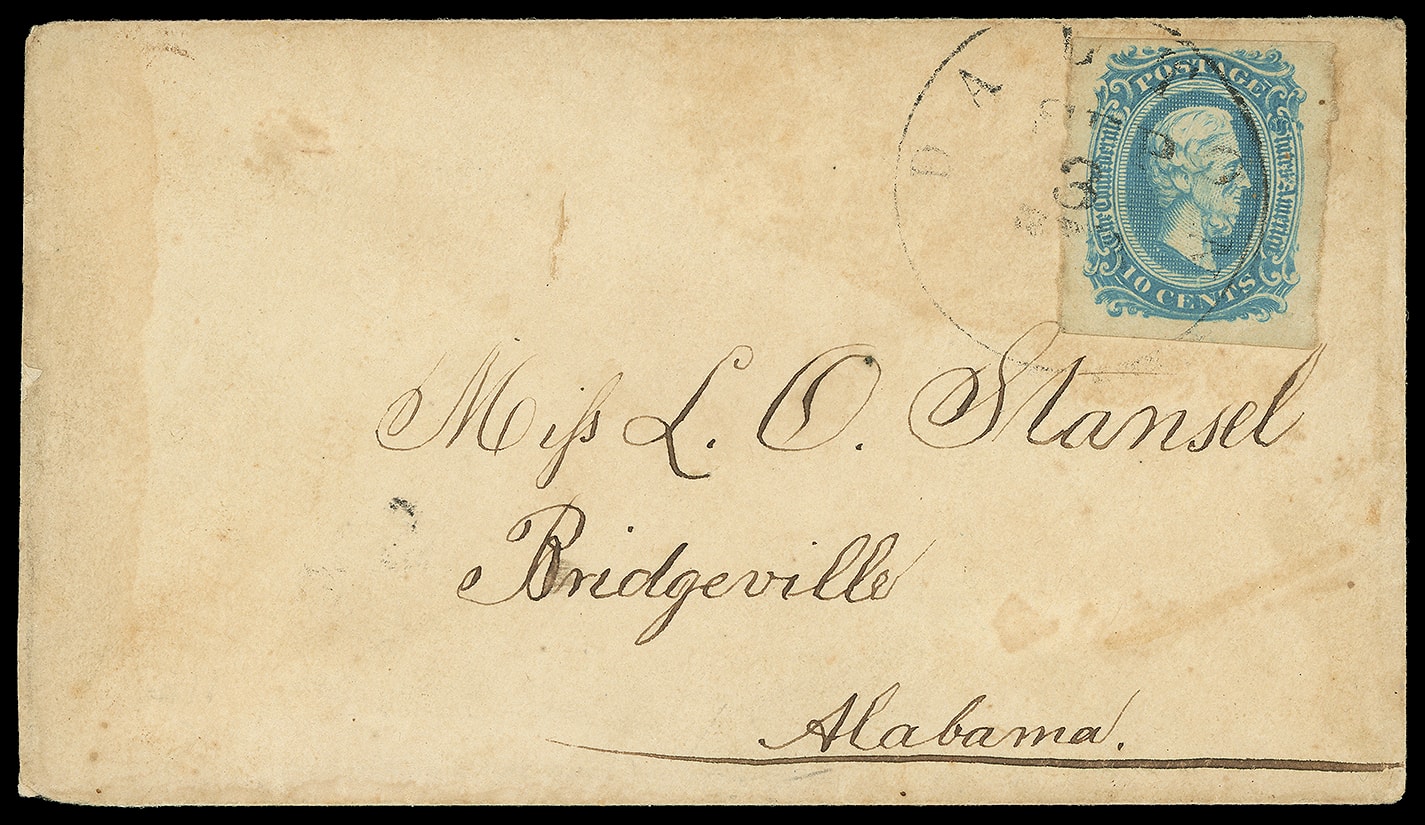 POSTAGE
The Confederate States of America
10 CENTS
Miss L. O. Stansel
Bridgeville
Alabama.